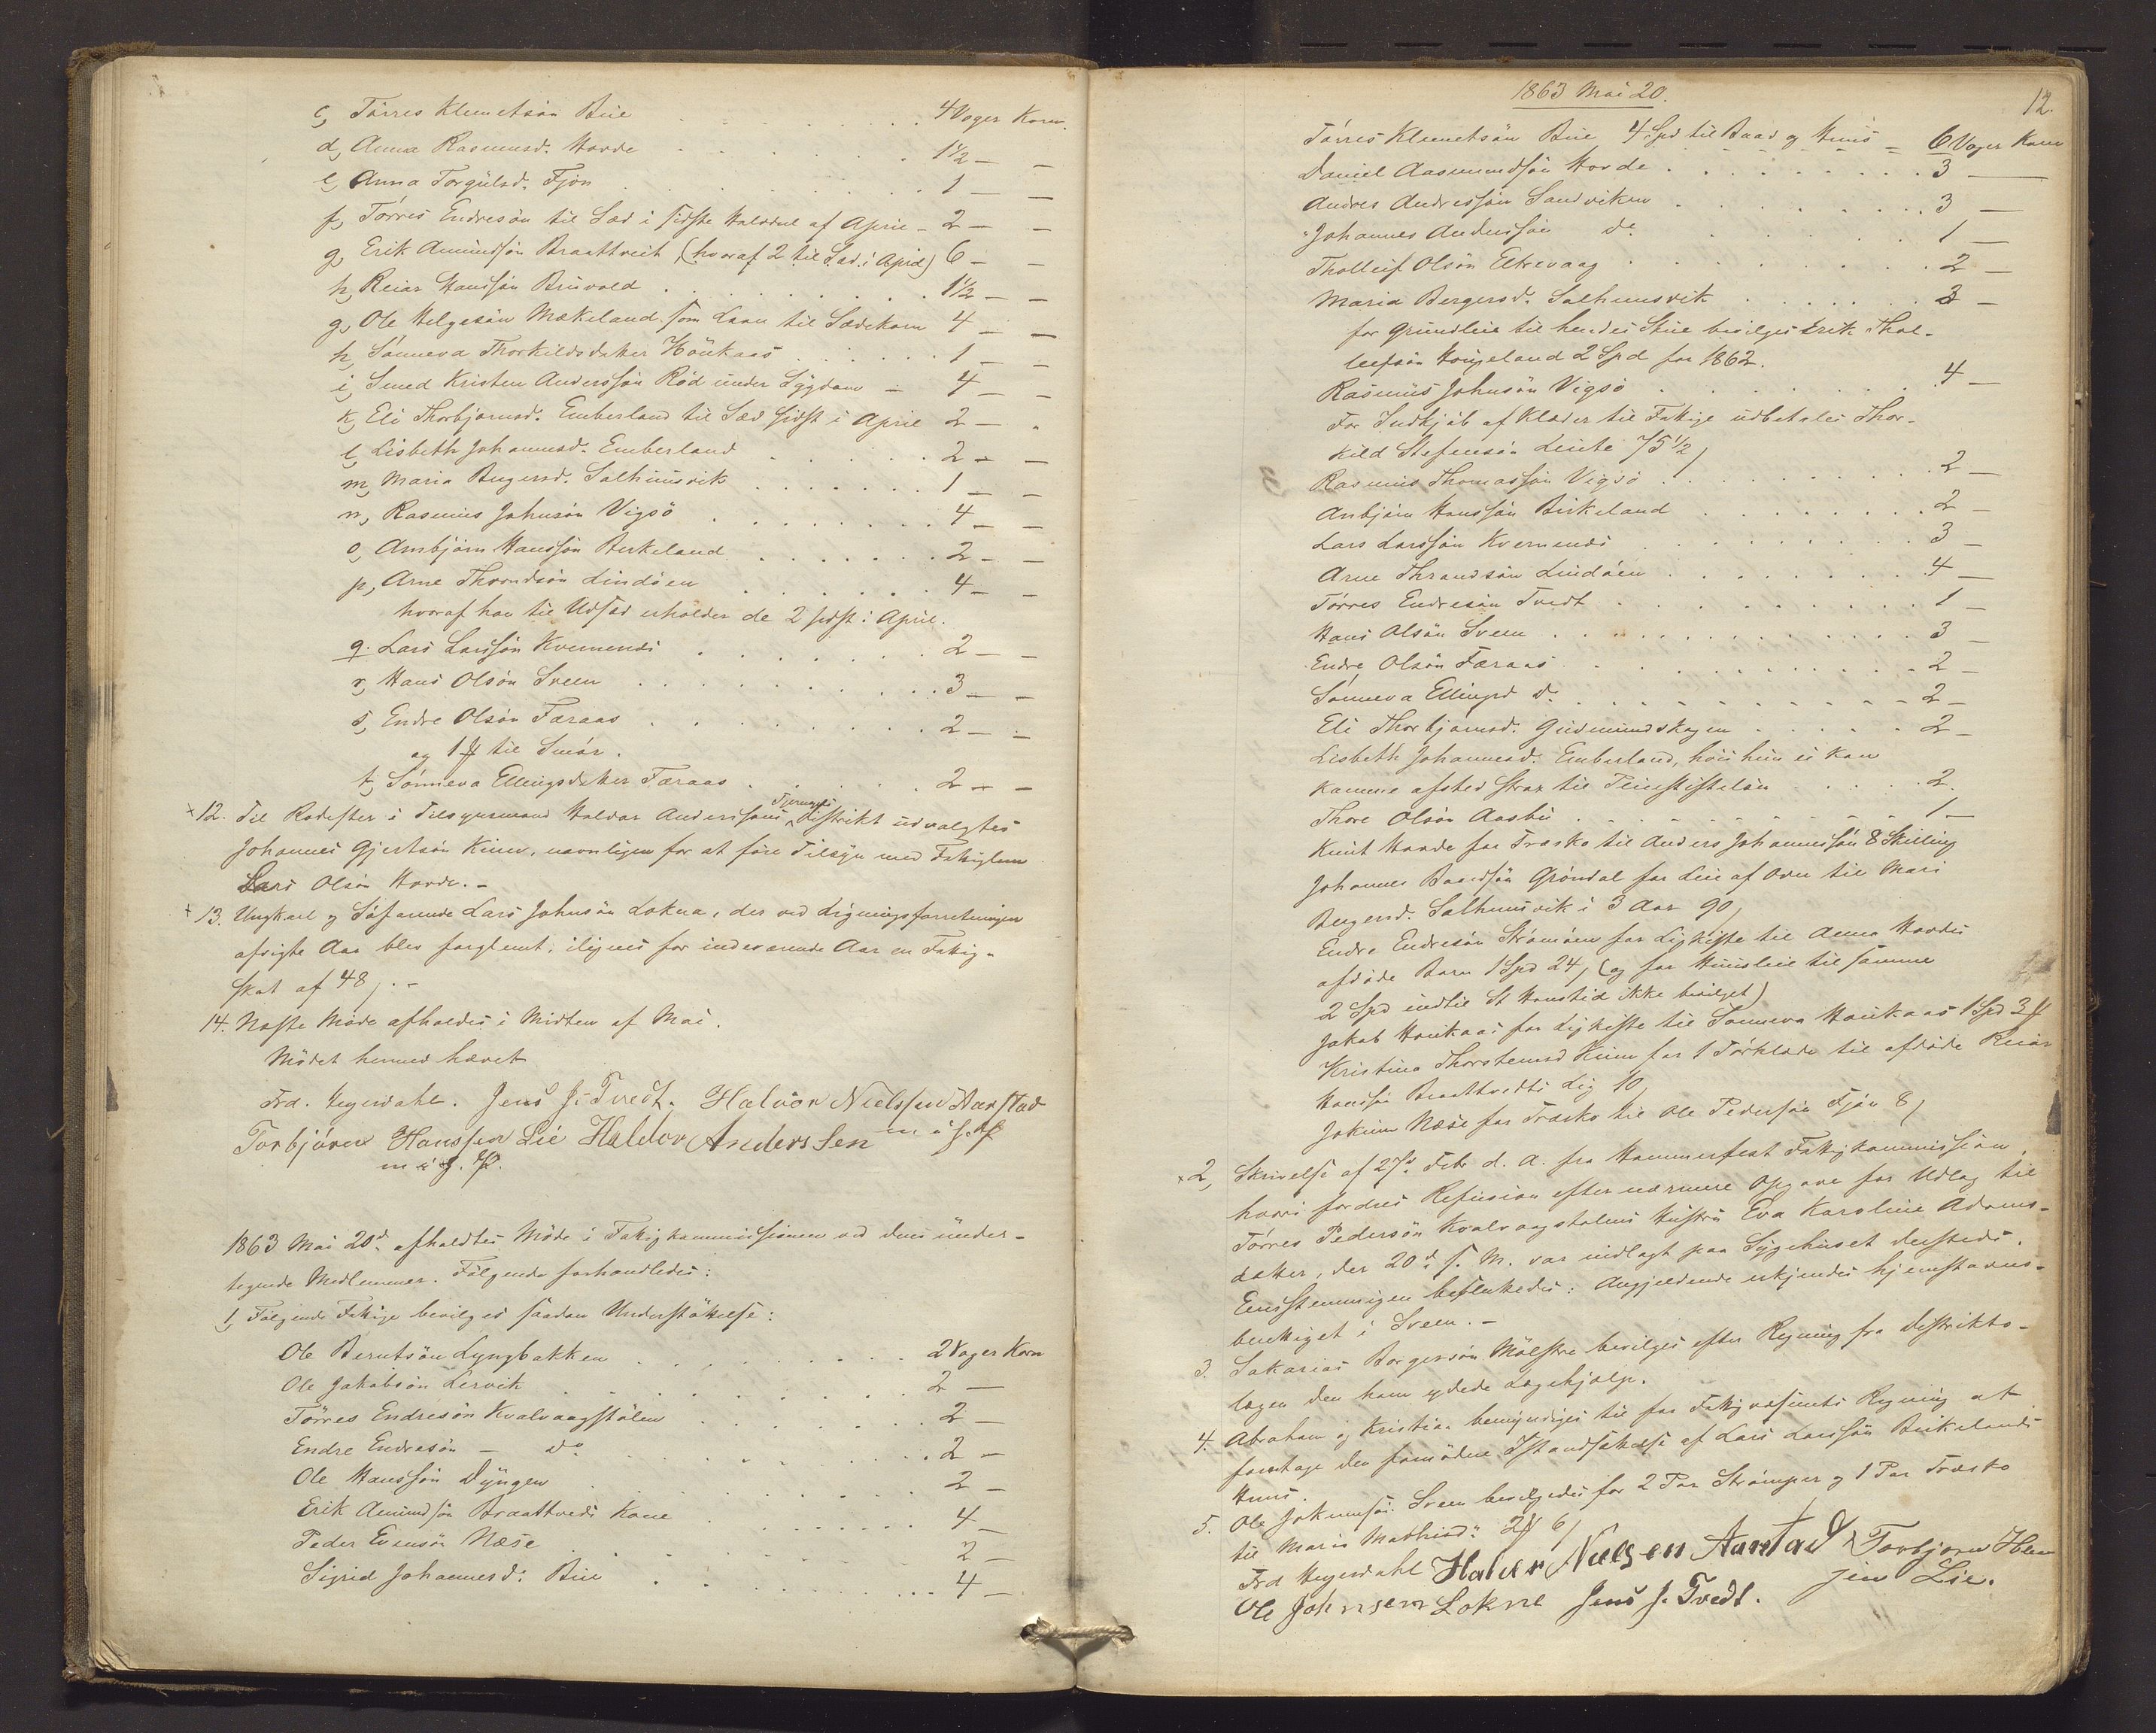 c, Törres Klemetsön Büe . . . . . 4 Voger Korn.
d, Anna Rasmusd. Hovde . . . . . 1½ — —
e, Anna Torgilsd. Fjön . . . . . 1 — —
f, Törres Endresön til Sæd i sidste Halvdel af April - 2 — —
g, Erik Amundsön Braattveit (hvoraf 2 til Sæd i April) 6 — —
h, Reiar Hanssön Brüvold . . . . . 1½ — —
g, Ole Helgesön Mækeland som Laan til Sædekorn 4 — —
h, Sönneva Thorkildsdatter Höükaas . . . . . 1 — —
i, Smed Kristen Anderssön Röd under Lÿgdom — 4 — —
k, Eli Thorbjörnsd. Emberland til Sæd sidst i April 2 — "
l, Lisbeth Johannesd. Emberland . . . . . 2 — —
m, Maria Bergersd. Salhuusvik . . . . . 1 — —
n, Rasmus Johnsön Vigsö . . . . . 4 — —
o, Arnbjörn Hanssön Berkeland . . . . . 2 — —
p, Arne Throndsön Lindöen . . . . . 4 — —
hvoraf han til Udsæd erholder de 2 sidst i April.
q. Lars Larssön Kvernenes . . . . . 2 — —
r, Hans Olsön Sveen . . . . . 3 — —
s, Endre Olsön Færaas . . . . . 2 — —
og 1 ₰ til Smör.
t, Sönneva Ellingsdatter Færaas . . . . . 2 — —
× 12. Til Rodester i Tilsynsmand Haldor Anderssens Distrikt udvalgtes
Johannes Gjertsön Kinn, navnligen for at före Tilsyn med Fattiglem
Lars Olsön Hovde. -
× 13. Ungkarl og Söfarende Lars Johnsön Lokna, der ved Ligningsforretningen
afvigte Aar blev forglemt, ilignes for indeværende Aar en Fattig-
skat af 48 ,. -
14. Næste Möde afholdes i Midten af Mai.
Mödet hermed hævet
Frd. Hegerdahl. Jens J. Tvedt. Halvor Nielssen Aarstad
Torbjörn Hanssen Lie Haldor Anderssen m i s P
m i s. P.
1863 Mai 20d. afholdtes Möde i Fattigkommissionen ved dens under-
tegnede Medlemmer. Fölgende forhandledes:
1, Fölgende Fattige bevilges saadan Understöttelse:
Ole Berntsön Lyngbakken . . . . . 2 Voger Korn
Ole Jakobsön Lervik . . . . . 2 —
Törres Endresön Kvalvaagstölen . . . . . 2 —
Endre Endresön — do . . . . . 2 —
Ole Hanssön Dyngen . . . . . 2 —
Erik Amundsön Braattvedts Kone . . . . . 4 —
Peder Evensön Næse . . . . . 2 —
Sigrid Johannesd: Büe . . . . . 4 —
1863 Mai 20.
12.
Törres Klemetsön Büe 4 Spd til Baad og Huus — 6 Voger Korn
Daniel Aasmundsön Hovde . . . . . 3 —
Andres Andressön Sandviken . . . . . 3 —
Johannes Anderssön do . . . . . 1 —
Tholleif Olsön Eltrevaag . . . . . 2 —
Maria Bergersd. Salhuusvik . . . . . 3 —
for Grundleie til hendes Stue bevilges Erik Thol-
leifsön Haugeland 2 Spd for 1862.
Rasmus Johnsön Vigsö . . . . . 4 —
For Indkjöb af Klæder til Fattige udbetales Thor-
kild Stefensön Leite 75½ ,
Rasmus Thomassön Vigsö . . . . . 2 —
Anbjörn Hanssön Birkeland . . . . . 2 —
Lars Larssön Kvernenes . . . . . 3 —
Arne Thrandsön Lindöen . . . . . 4 —
Törres Endresön Tvedt . . . . . 1 —
Hans Olsön Sveen . . . . . 3 —
Endre Olsön Færaas . . . . . 2 —
Sönneva Ellingsd do . . . . . 2 —
Eli Thorbjörnsd. Gudmundshagen . . . . . 2 —
Lisbeth Johannesd. Emberland, hvis hun ei kan
komme afsted strax til Pleiestiftelsen . . . . . 2.
Thore Olsön Aasbü . . . . . 1 —
Knüt Hovde for Træsko til Anders Johannessön 8 Skilling
Johannes Baardsön Gröndal for Leie af Ovn til Mari
Bergersd. Salhuusvik i 3 Aar 90 ,
Endre Endresön Strömöen for Ligkiste til Anna Hovdes
afdöde Barn 1 Spd 24, (og for Huusleie til samme
2 Spd indtil St Hanstid ikke bevilget)
Jakob Haukaas for Ligkiste til Sönneva Haukaas 1 Spd 3 ₰
Kristina Thorstensd Kinn for 1 Törklæde til afdöde Reiar
Hanssön Braattvedts Lig 10,
Jokum Næse for Træsko til Ole Pederssön Fjön 8 ,
× 2, Skrivelse af 27de Febr d. A. fra Hammerfest Fattigkommission,
hvori fordres Refusion efter nærmere Opgave for Udlæg til
Törres Pedersön Kvalvaagstölens Hustru Eva Karoline Adams-
datter, der 20d. s. M. var indlagt paa Sygehuset dersteds.
Eenstemmigen besluttedes: Angjeldende erkjendes hjemstavns-
berettiget i Sveen. -
3. Sakarias Borgersön Mölstre bevilges efter Regning fra Distrikts-
lægen den ham ydede Lægehjælp.
4. Abraham og Kristian bemyndiges til for Fattigvæsenets Regning at
foretage den fornödne Istandsættelse af Lars Larssön Birkelands
Huus.
5. Ole Jokumsön Sveen bevilgedes for 2 Par Strömper og 1 Par Træsko
til Maris Mathisd: 2 ₰ 6 ,
Frd Hegerdahl Halvor Nielsen Aarstad Torbjørn Han
sen Lie.
Ole Johnsen Lokne Jens J. Tvedt.